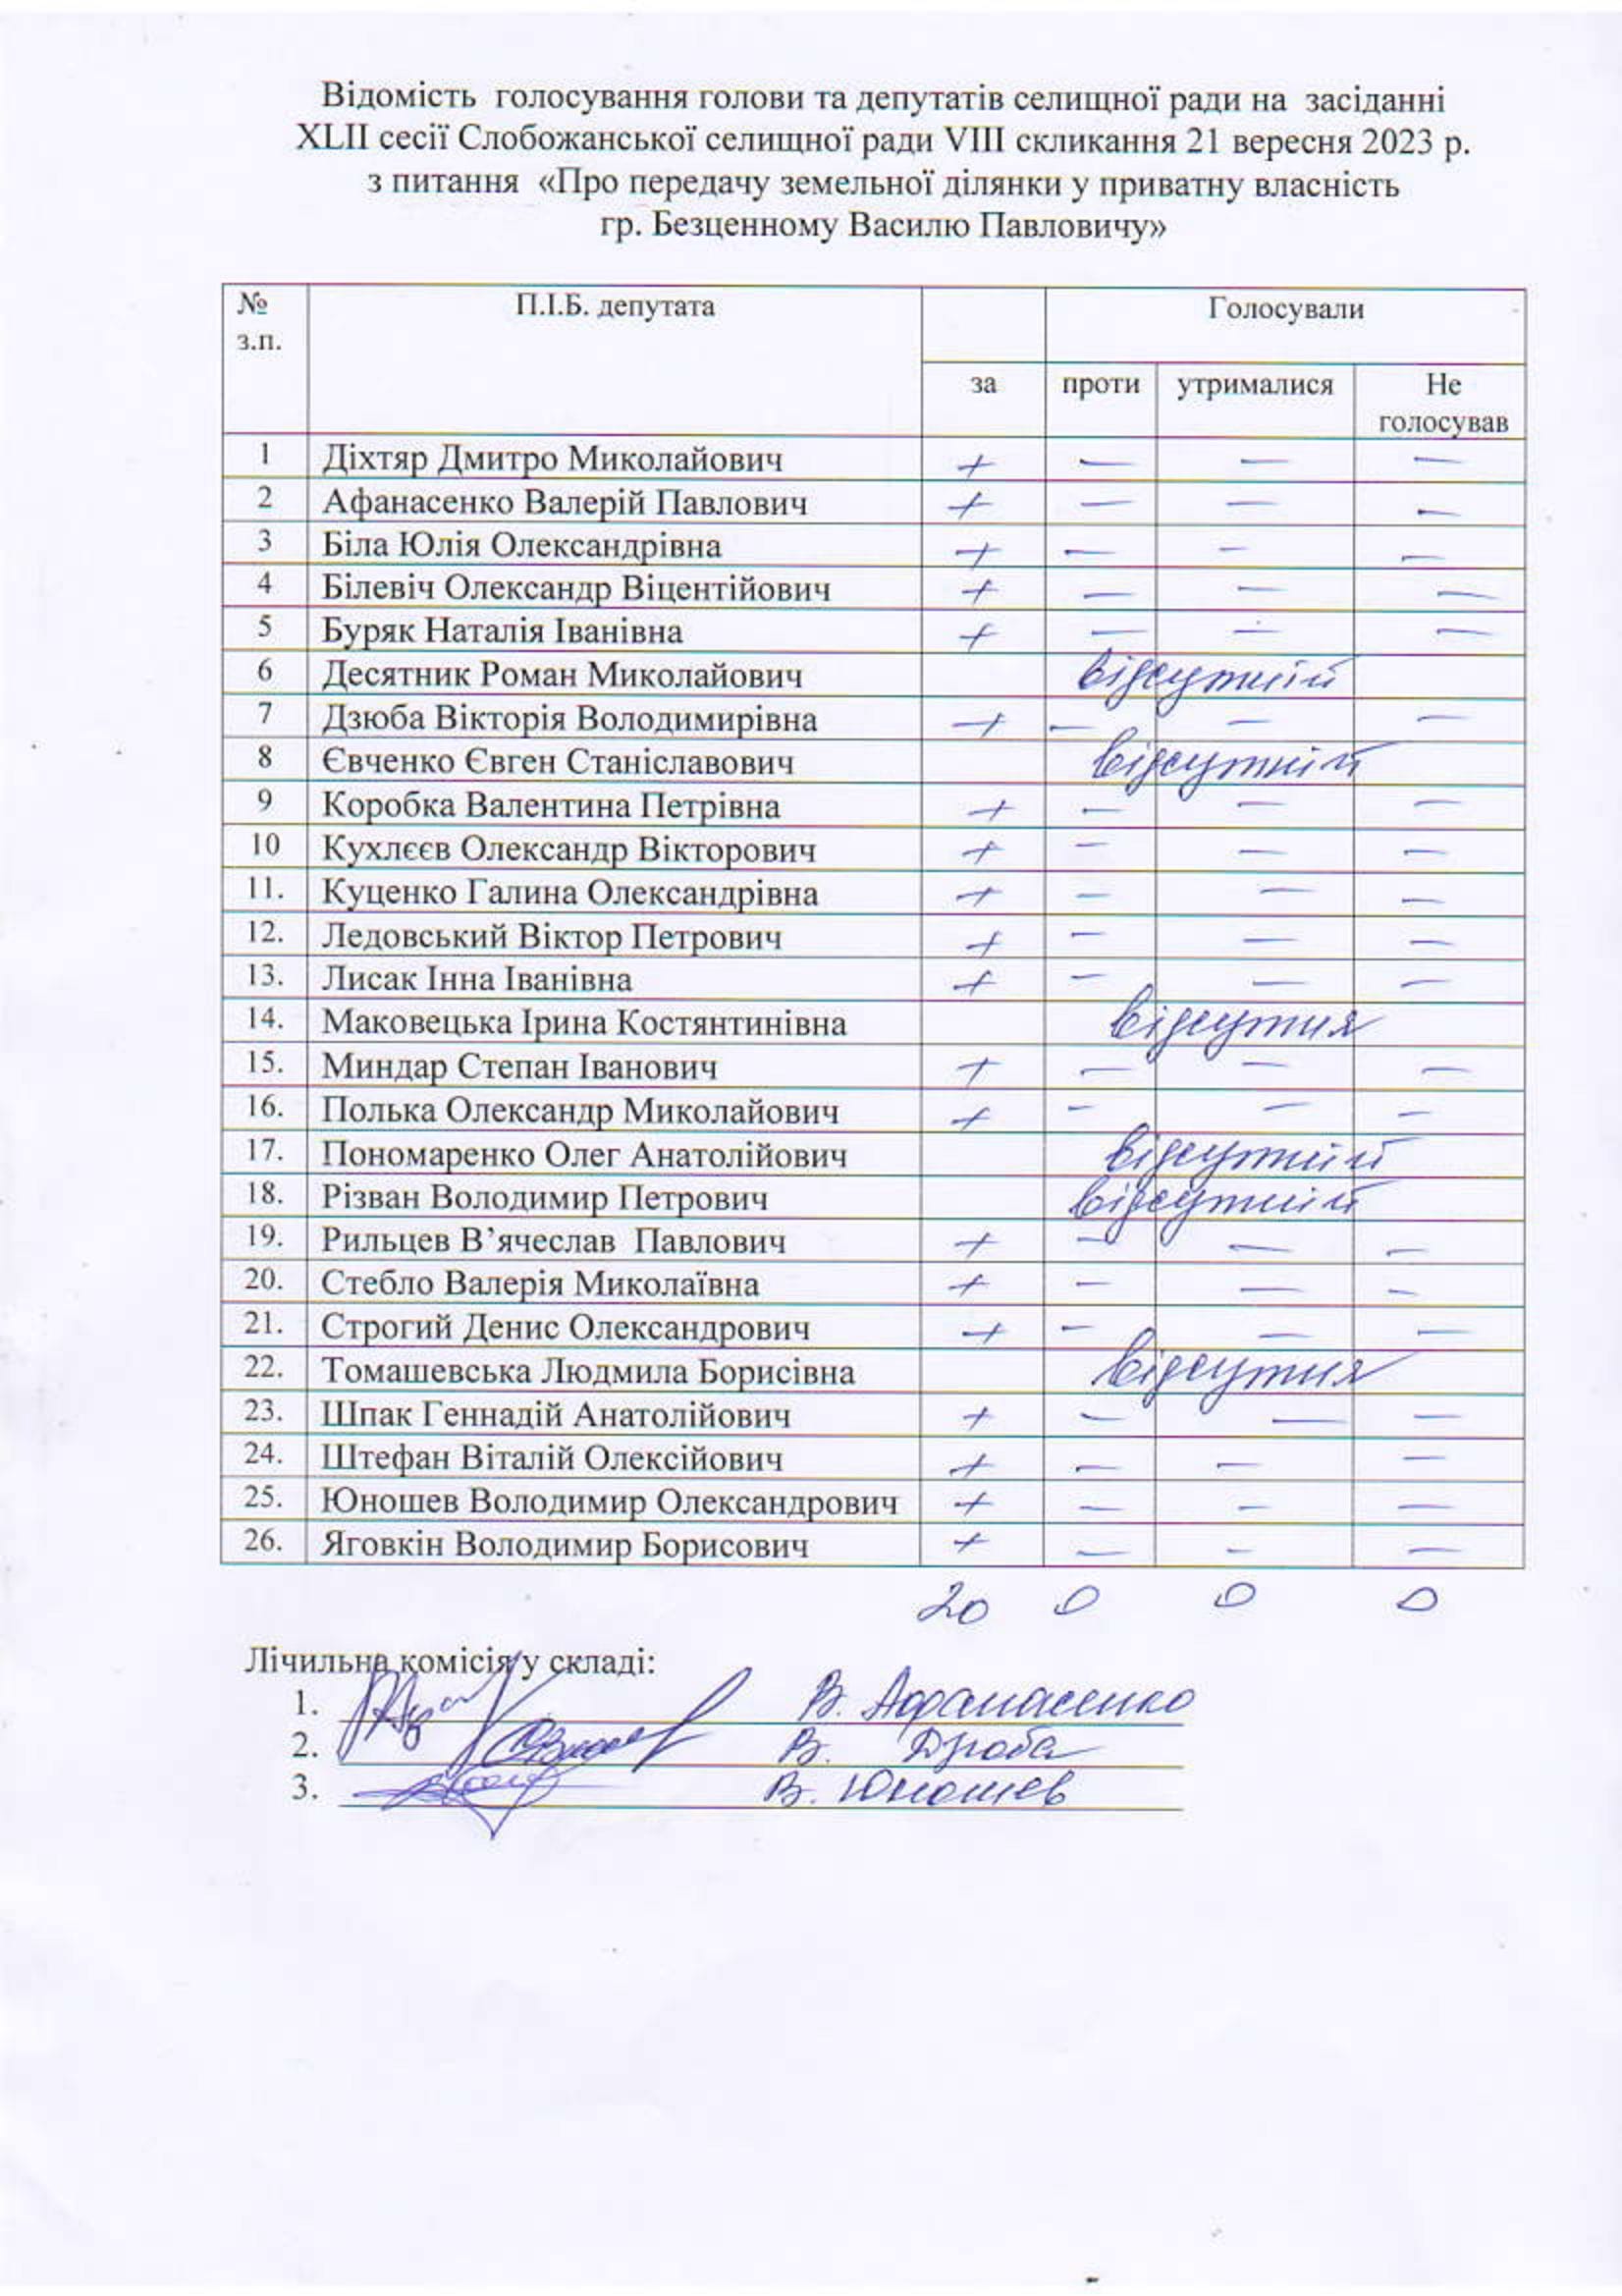 Відомість голосування голови та депутатів селищної ради на засіданні
XLII сесії Слобожанської селищної ради VIII скликання 21 вересня 2023 р.
з питання «Про передачу земельної ділянки у приватну власність
гр. Безценному Василю Павловичу»
№ з.п. П.І.Б. депутата Голосували
за проти утрималися Не голосував
1 Діхтяр Дмитро Миколайович + — — —
2 Афанасенко Валерій Павлович + — — —
3 Біла Юлія Олександрівна + — — —
4 Білевіч Олександр Віцентійович + — — —
5 Буряк Наталія Іванівна + — — —
6 Десятник Роман Миколайович відсутній
7 Дзюба Вікторія Володимирівна + — — —
8 Євченко Євген Станіславович відсутній
9 Коробка Валентина Петрівна + — — —
10 Кухлєєв Олександр Вікторович + — — —
11. Куценко Галина Олександрівна + — — —
12. Ледовський Віктор Петрович + — — —
13. Лисак Інна Іванівна + — — —
14. Маковецька Ірина Костянтинівна відсутня
15. Миндар Степан Іванович + — — —
16. Полька Олександр Миколайович + — — —
17. Пономаренко Олег Анатолійович відсутній
18. Різван Володимир Петрович відсутній
19. Рильцев В’ячеслав Павлович + — — —
20. Стебло Валерія Миколаївна + — — —
21. Строгий Денис Олександрович + — — —
22. Томашевська Людмила Борисівна відсутня
23. Шпак Геннадій Анатолійович + — — —
24. Штефан Віталій Олексійович + — — —
25. Юношев Володимир Олександрович + — — —
26. Яговкін Володимир Борисович + — — —
20 0 0 0
Лічильна комісія у складі:
1. В. Афанасенко
2. В. Дзюба
3. В. Юношев